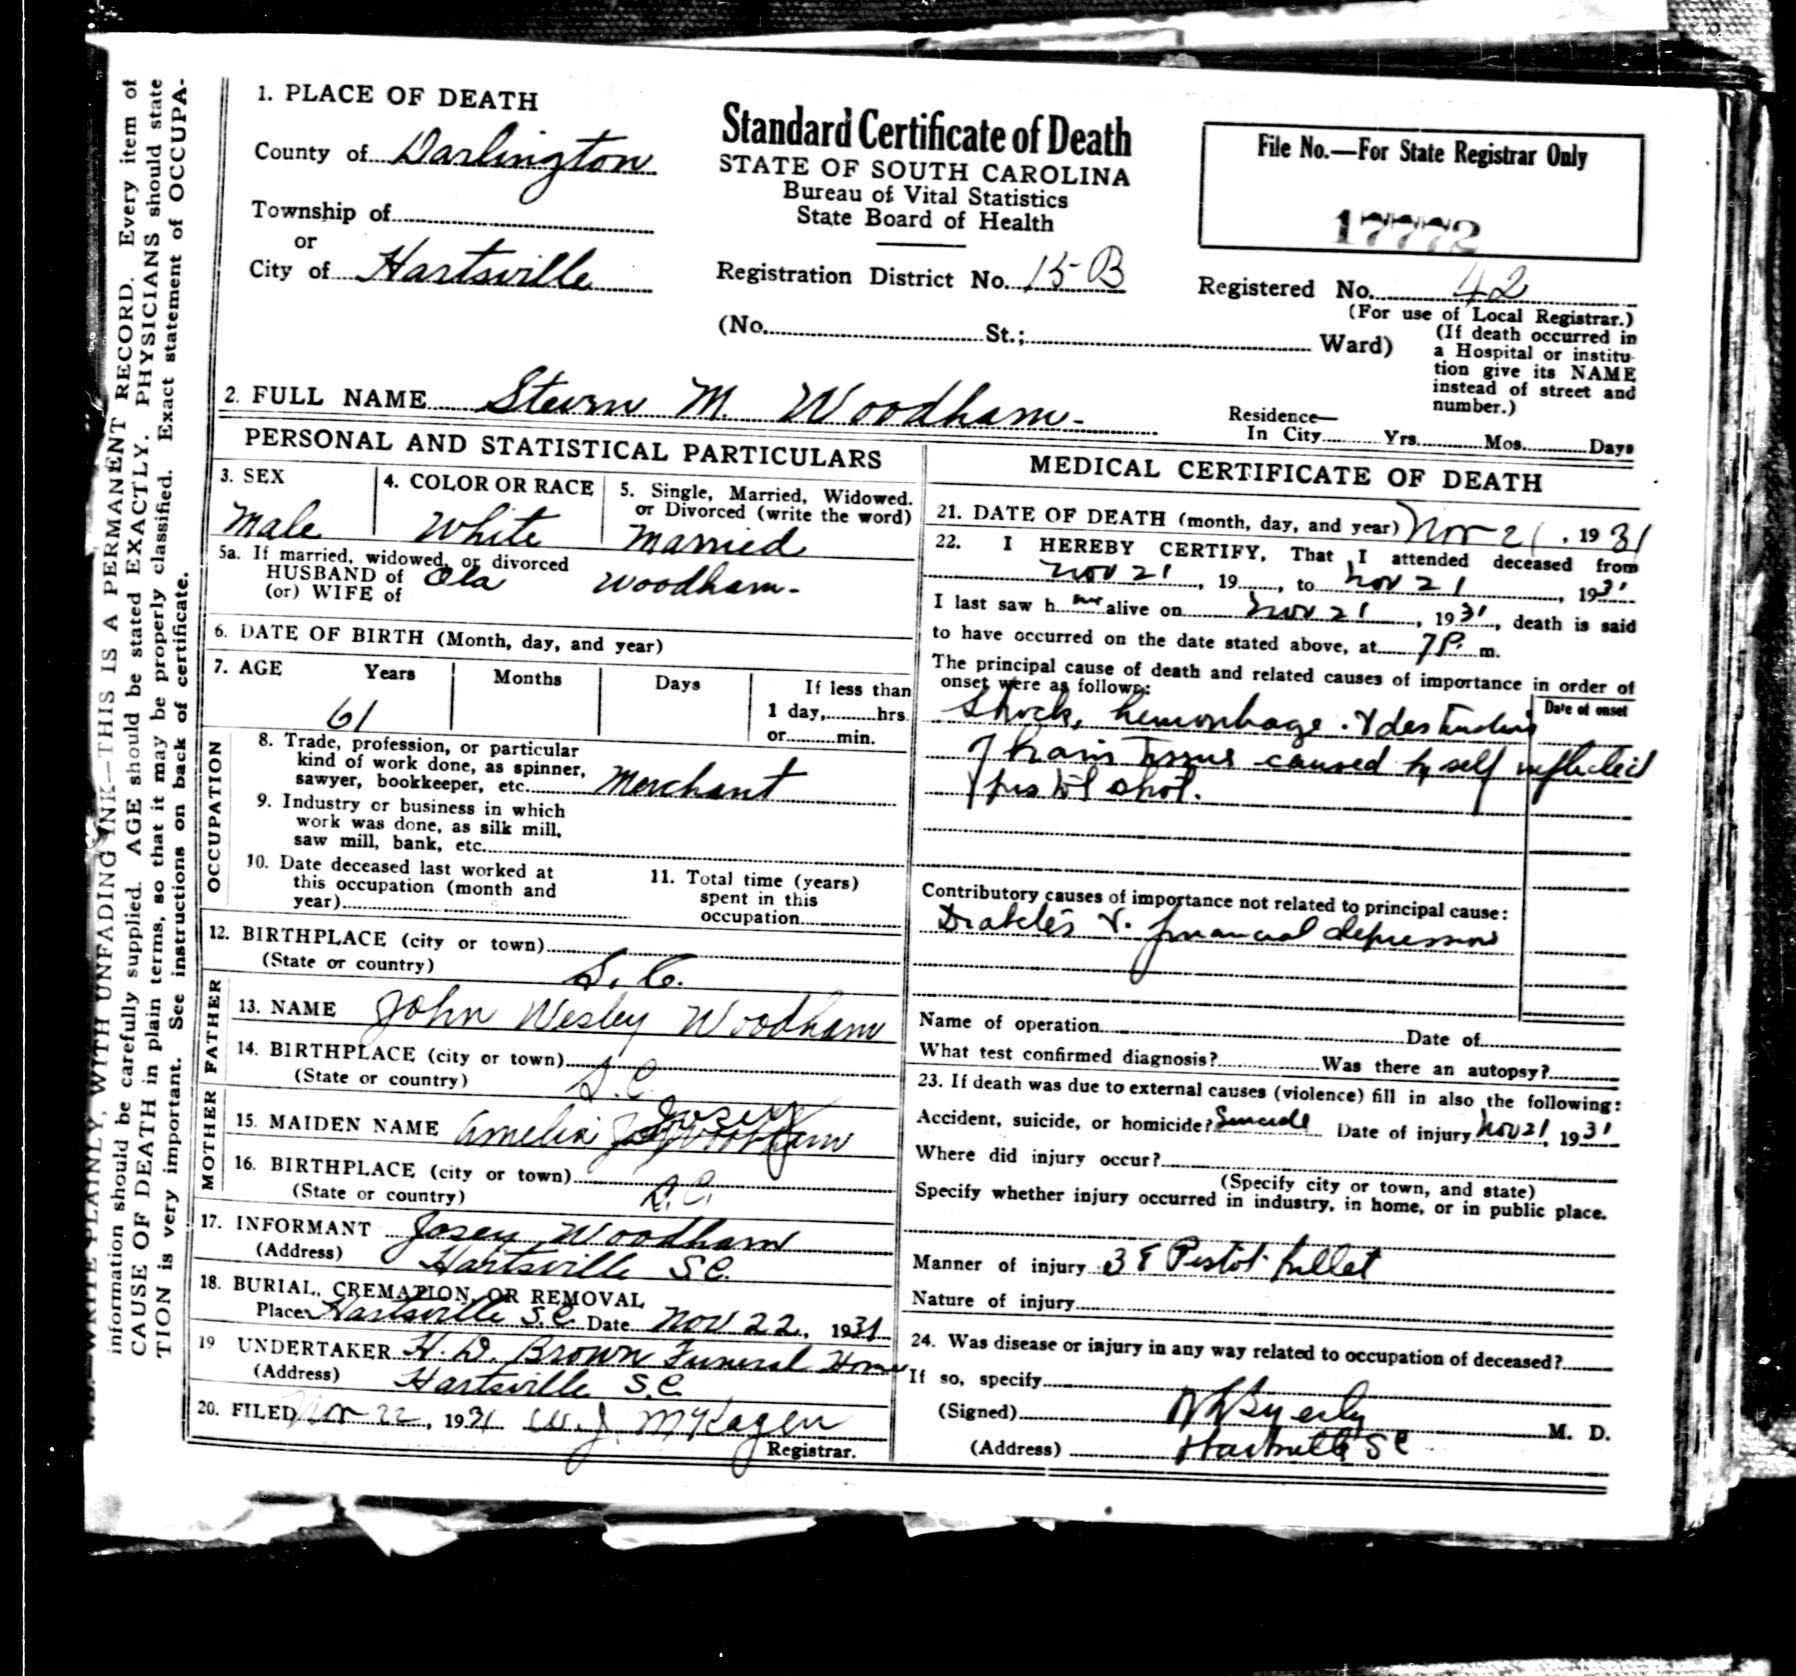 1. PLACE OF DEATH
County of Darlington
Township of
or
City of Hartsville
Standard Certificate of Death
STATE OF SOUTH CAROLINA
Bureau of Vital Statistics
State Board of Health
Registration District No. 15-B
(No. St.; Ward)
File No.—For State Registrar Only
17772
Registered No. 42
(For use of Local Registrar.)
(If death occurred in
a Hospital or institu-
tion give its NAME
instead of street and
number.)
2. FULL NAME Steven M. Woodham-
Residence—
In City Yrs. Mos. Days
PERSONAL AND STATISTICAL PARTICULARS
3. SEX
Male
4. COLOR OR RACE
White
5. Single, Married, Widowed.
or Divorced (write the word)
Married
5a. If married, widowed, or divorced
HUSBAND of Ola Woodham-
(or) WIFE of
6. DATE OF BIRTH (Month, day, and year)
7. AGE Years Months Days If less than
61 1 day, hrs.
or min.
OCCUPATION
8. Trade, profession, or particular
kind of work done, as spinner,
sawyer, bookkeeper, etc. Merchant
9. Industry or business in which
work was done, as silk mill,
saw mill, bank, etc.
10. Date deceased last worked at
this occupation (month and
year)
11. Total time (years)
spent in this
occupation
12. BIRTHPLACE (city or town)
(State or country) S. C.
FATHER
13. NAME John Wesley Woodham
14. BIRTHPLACE (city or town)
(State or country) S.C.
MOTHER
Josey
15. MAIDEN NAME Amelia Woodham
16. BIRTHPLACE (city or town)
(State or country) S.C.
17. INFORMANT Josey Woodham
(Address) Hartsville S.C.
18. BURIAL, CREMATION, OR REMOVAL
Place Hartsville S.C. Date Nov 22, 1931
19 UNDERTAKER H. D. Brown Funeral Home
(Address) Hartsville S.C.
20. FILED Nov 22, 1931 W. J. McKagen
Registrar.
MEDICAL CERTIFICATE OF DEATH
21. DATE OF DEATH (month, day, and year) Nov 21, 1931
22. I HEREBY CERTIFY, That I attended deceased from
Nov 21, 19, to Nov 21, 1931
I last saw him alive on Nov 21, 1931, death is said
to have occurred on the date stated above, at 7 P. m.
The principal cause of death and related causes of importance in order of
onset were as follows:
Date of onset
Shock, hemorrhage & destruction
of brain tissue caused by self inflicted
pistol shot.
Contributory causes of importance not related to principal cause:
Diabetes & financial depression
Name of operation Date of
What test confirmed diagnosis? Was there an autopsy?
23. If death was due to external causes (violence) fill in also the following:
Accident, suicide, or homicide? Suicide Date of injury Nov 21, 1931
Where did injury occur?
(Specify city or town, and state)
Specify whether injury occurred in industry, in home, or in public place.
Manner of injury 38 Pistol bullet
Nature of injury
24. Was disease or injury in any way related to occupation of deceased?
If so, specify
(Signed) Byerly M. D.
(Address) Hartsville SC
WRITE PLAINLY, WITH UNFADING INK—THIS IS A PERMANENT RECORD. Every item of
information should be carefully supplied. AGE should be stated EXACTLY. PHYSICIANS should state
CAUSE OF DEATH in plain terms, so that it may be properly classified. Exact statement of OCCUPA-
TION is very important. See instructions on back of certificate.